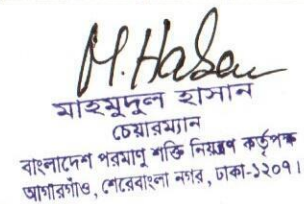 M. Hasan
মাহমুদুল হাসান
চেয়ারম্যান
বাংলাদেশ পরমাণু শক্তি নিয়ন্ত্রণ কর্তৃপক্ষ
আগারগাঁও, শেরেবাংলা নগর, ঢাকা-১২০৭।